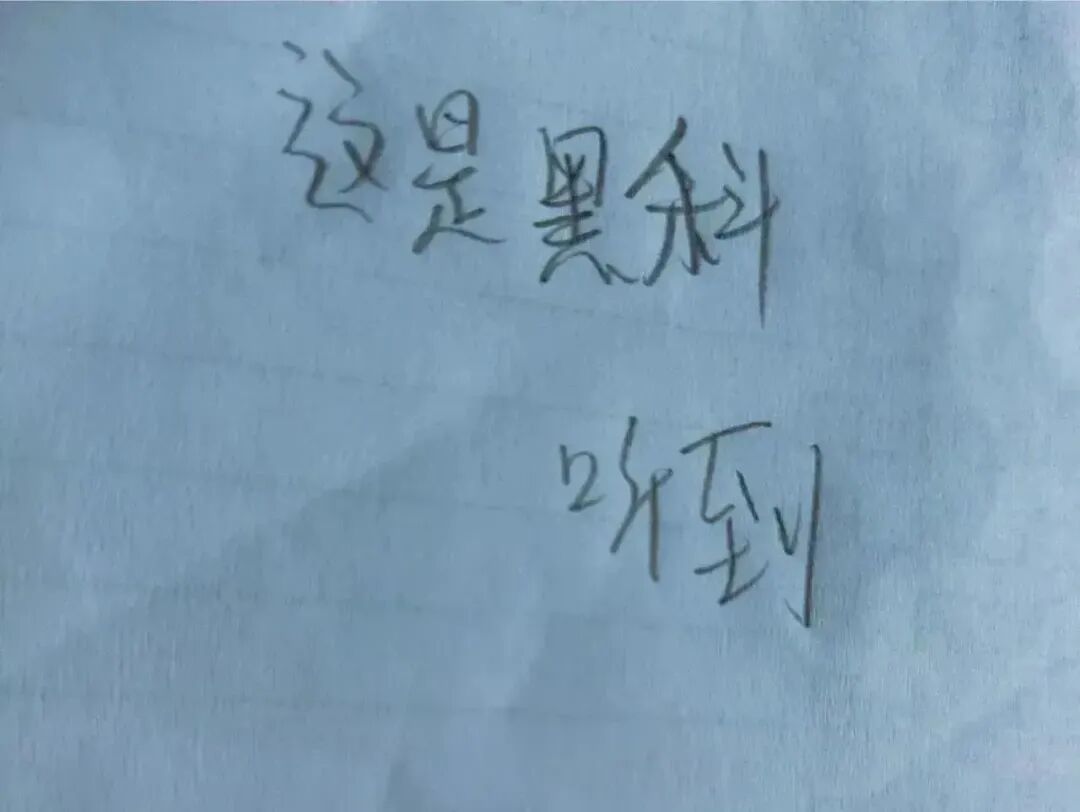 这是黑科
听到